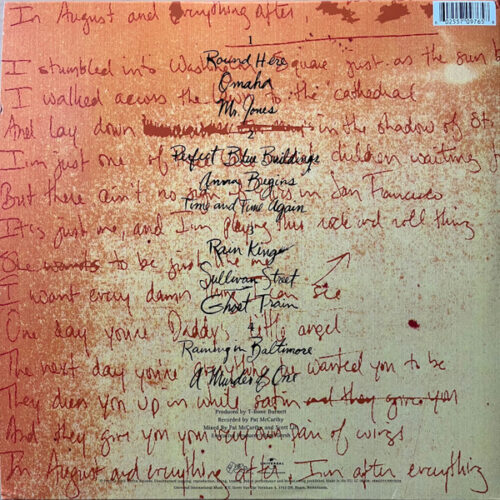 In August and everything after,
6 02557 09765
1
I stumbled into Washington Square just as the sun
Round Here
Omaha
I walked across the to the cathedral
Mr. Jones
And lay down in the shadow of St.
2
I'm just one of children waiting
Perfect Blue Buildings
Anna Begins
But there ain't no in San Francisco
Time and Time Again
It's just me, and I'm playing this rock and roll thing
Rain King
She wants to be just like me
Sullivan Street
I want every damn thing I can see
Ghost Train
One day you're Daddy's little angel
Raining in Baltimore
The next day you're everything he wanted you to be
A Murder of One
They dress you up in white satin and they give you
Produced by T-Bone Burnett
Recorded by Pat McCarthy
Mixed by Pat McCarthy and Scott
And they give you your very own pair of wings
In August and everything after, I'm after everything